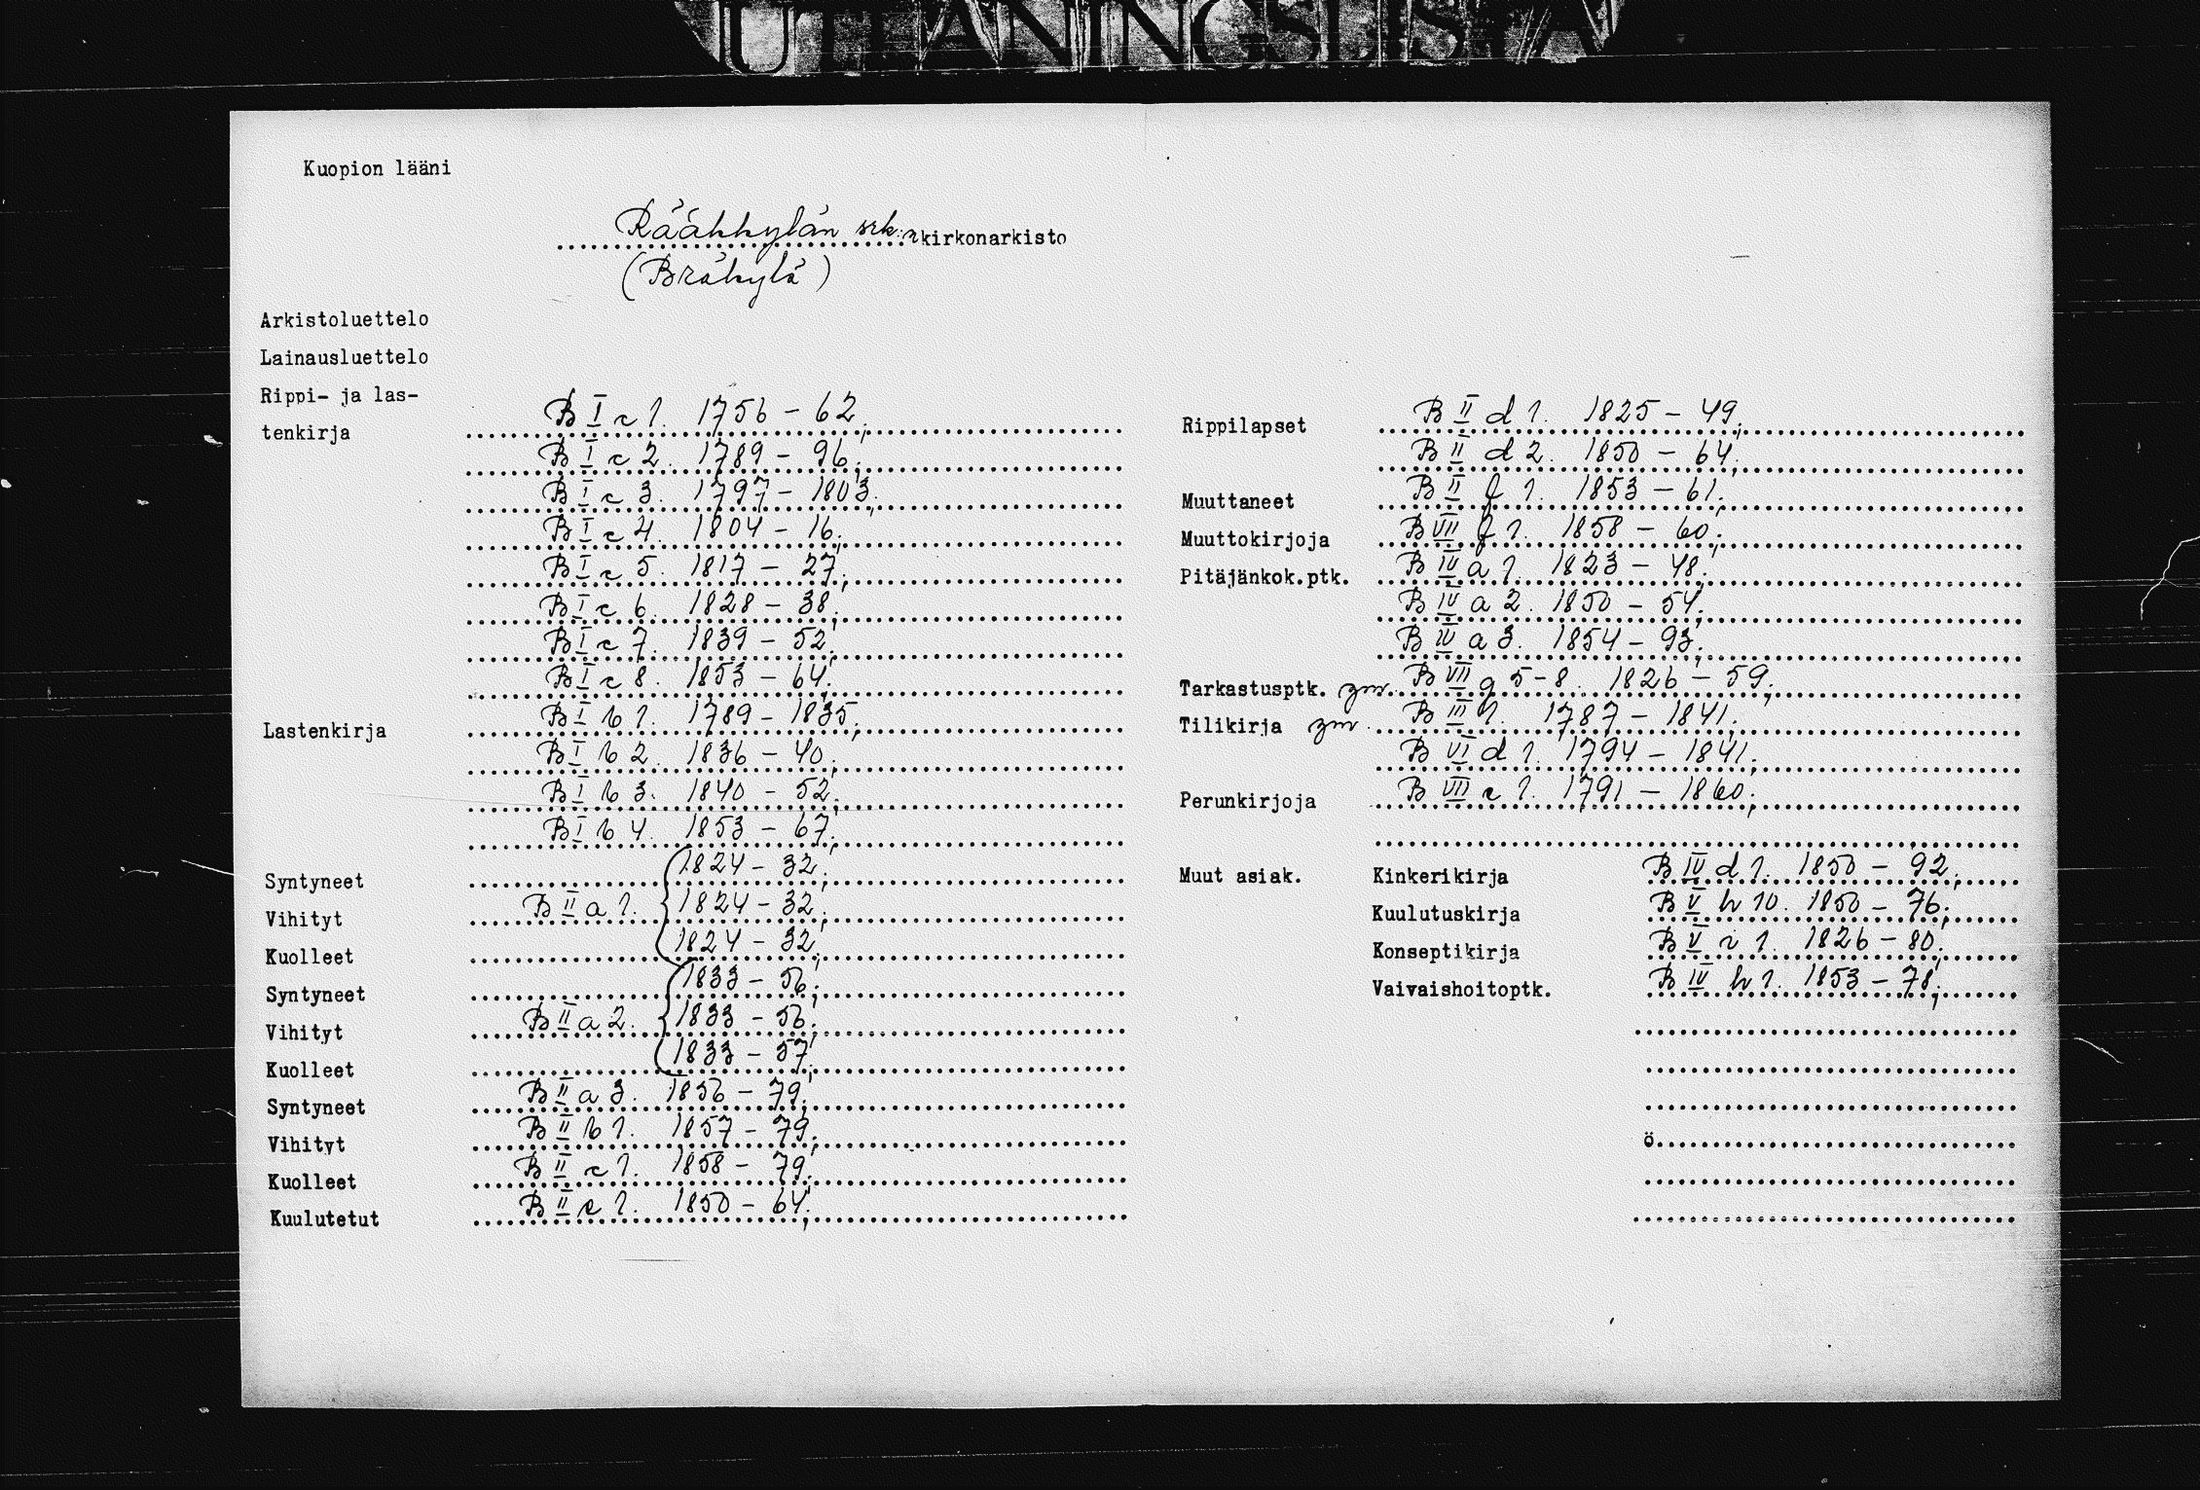 UTLÅNINGSLISTA
Kuopion lääni
Rääkkylän srk:n kirkonarkisto
(Bräkylä)
Arkistoluettelo
Lainausluettelo
Rippi- ja las-
tenkirja B I c 1. 1756 - 62;
B I c 2. 1789 - 96;
B I c 3. 1797 - 1803;
B I c 4. 1804 - 16;
B I c 5. 1817 - 27;
B I c 6. 1828 - 38;
B I c 7. 1839 - 52;
B I c 8. 1853 - 64;
Lastenkirja B I b 1. 1789 - 1835;
B I b 2. 1836 - 40;
B I b 3. 1840 - 52;
B I b 4. 1853 - 67;
Syntyneet 1824 - 32;
Vihityt B II a 1. 1824 - 32;
Kuolleet 1824 - 32;
Syntyneet 1833 - 56;
Vihityt B II a 2. 1833 - 56;
Kuolleet 1833 - 57;
Syntyneet B II a 3. 1856 - 79;
Vihityt B II b 1. 1857 - 79;
Kuolleet B II c 1. 1858 - 79;
Kuulutetut B II e 1. 1850 - 64;
Rippilapset B II d 1. 1825 - 49;
B II d 2. 1850 - 64;
Muuttaneet B II f 1. 1853 - 61;
Muuttokirjoja B VII f 1. 1858 - 60;
Pitäjänkok.ptk. B IV a 1. 1823 - 48;
B IV a 2. 1850 - 54;
B IV a 3. 1854 - 93;
Tarkastusptk. ym. B VII g 5-8. 1826 - 59;
Tilikirja ym. B III 1. 1787 - 1841;
B VI d 1. 1794 - 1841;
Perunkirjoja B VII e 1. 1791 - 1860;
Muut asiak. Kinkerikirja B IV d 1. 1850 - 92;
Kuulutuskirja B V h 10. 1850 - 76;
Konseptikirja B V i 1. 1826 - 80;
Vaivaishoitoptk. B IV h 1. 1853 - 78;
ö